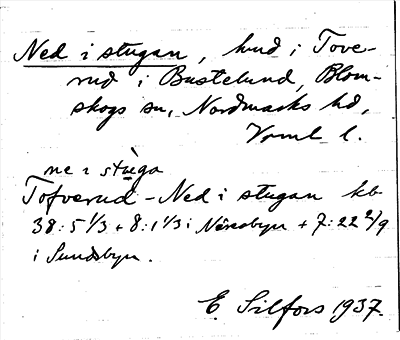 Ned i stugan, hmd i Tove-
rud i Bustelund, Blom-
skogs sn, Nordmarks hd,
Vrml l.
ne i stùga
Tofverud - Ned i stugan kb
38:5 1/3 + 8:1 1/3 i Näresbyn + 7:22 2/9
i Sundsbyn.
E. Silfors 1937.